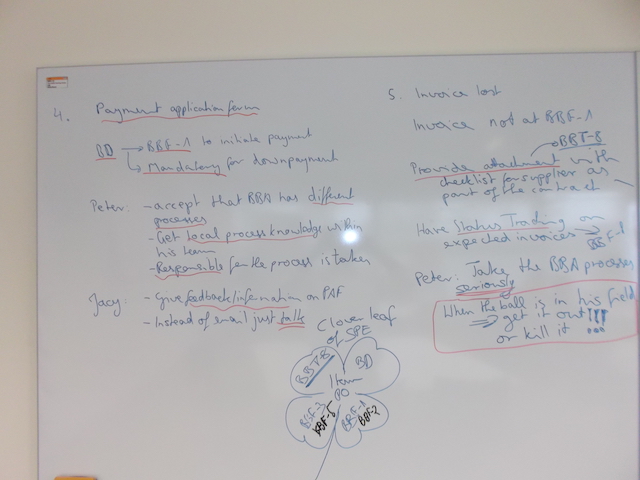 4. Payment application form
BD → BBF-1 to initiate payment
→ Mandatory for downpayment
Peter: - accept that BBA has different
processes
- Get local process knowledge within
his team
- Responsible for the process is taken
Jacy: - Give feedback/information on PAF
- Instead of email just talk
Clover leaf
of SPE
BBT-B
BD
1 term
PO
BBF-3
BBF-1
BBF-2
5. Invoice lost
Invoice not at BBF-1
BBT-B
Provide attachment with
checklist for supplier as
part of the contract
Have Status Trading on
expected invoices → BBF-1
Peter: Take the BBA processes
seriously
When the ball is in his field
⇒ get it out!!!
or kill it !!!